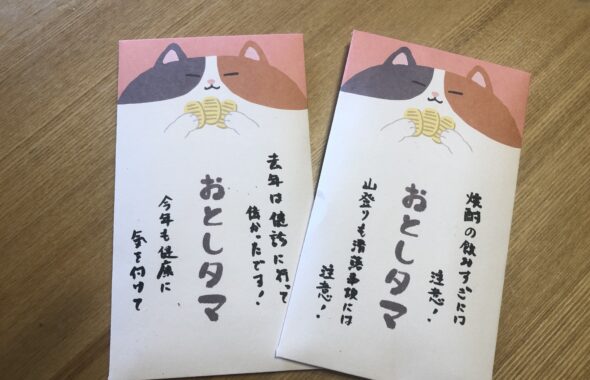 去年は健診に行って
偉かったです!
おとしタマ
今年も健康に
気を付けて
焼酎の飲みすぎには
注意!
おとしタマ
山登りも滑落事故には
注意!